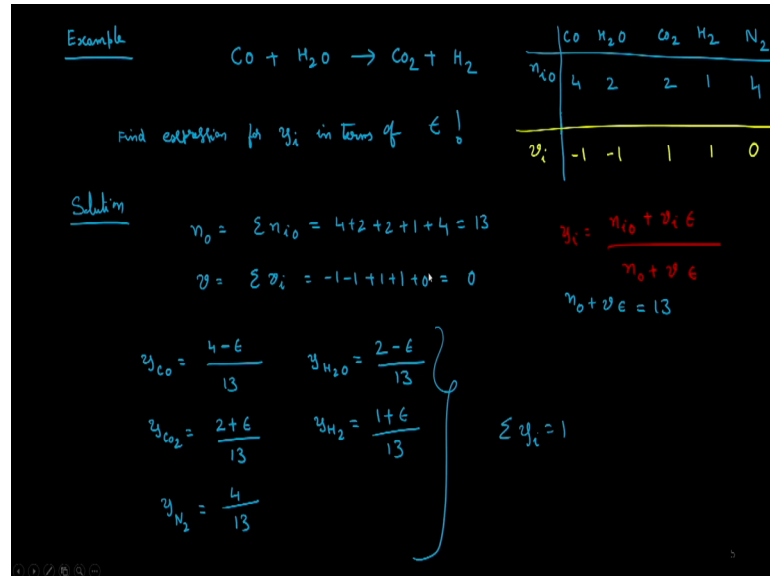 Example
CO + H₂O → CO₂ + H₂
CO H₂O CO₂ H₂ N₂
n_i0 4 2 2 1 4
ν_i -1 -1 1 1 0
Find expression for y_i in terms of ϵ !
Solution
n_0 = Σ n_i0 = 4+2+2+1+4 = 13
ν = Σ ν_i = -1-1+1+1+0 = 0
y_i = (n_i0 + ν_i ϵ) / (n_0 + ν ϵ)
n_0 + ν ϵ = 13
y_CO = (4-ϵ)/13 y_H₂O = (2-ϵ)/13
y_CO₂ = (2+ϵ)/13 y_H₂ = (1+ϵ)/13
Σ y_i = 1
y_N₂ = 4/13
5